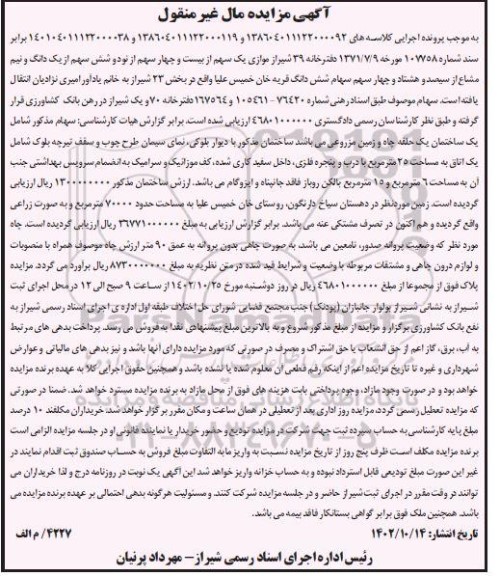 آگهی مزایده مال غیر منقول
به موجب پرونده اجرایی کلاسه های ۱۳۸۶۰۴۰۱۱۱۲۲۰۰۰۰۹۲ و ۱۳۸۶۰۴۰۱۱۱۲۲۰۰۰۱۱۹ و ۱۴۰۱۰۴۰۱۱۱۲۲۰۰۰۰۳۸ برابر
سند شماره ۱۰۷۷۵۸ مورخه ۱۳۷۱/۷/۹ دفترخانه ۳۹ شیراز موازی یک سهم از بیست و چهار سهم از نود و شش سهم از یک دانگ و نیم
مشاع از سیصد و هشتاد و چهار سهم سهام شش دانگ قریه خان خمیس علیا واقع در بخش ۲۳ شیراز به خانم یادآور امیری نژادیان انتقال
یافته است. سهام موصوف طبق اسناد رهنی شماره ۷۶۴۲۰ – ۱۰۵۴۶۱ و ۱۶۷۵۶۴ دفترخانه ۷۰ و یک شیراز در رهن بانک کشاورزی قرار
گرفته و طبق نظر کارشناسان رسمی دادگستری ۴۶۸۰۱۰۰۰۰۰۰ ارزیابی شده است. برابر گزارش هیات کارشناسی: سهام مذکور شامل
یک ساختمان یک حلقه چاه و زمین مزروعی می باشد ساختمان مذکور با دیوار بلوکی، نمای سیمان طرح چوب و سقف تیرچه بلوک شامل
یک اتاق به مساحت ۲۵ مترمربع با درب و پنجره فلزی، داخل سفید کاری شده، کف موزائیک و سرامیک به انضمام سرویس بهداشتی جنب
آن به مساحت ۶ مترمربع و ۱۵ مترمربع بالکن روباز فاقد جانپناه و ایزوگام می باشد. ارزش ساختمان مذکور ۱۳۰۰۰۰۰۰۰۰ ریال ارزیابی
گردیده است. زمین موردنظر در دهستان سیاخ دارنگون، روستای خان خمیس علیا به مساحت حدود ۷۰۰۰۰ مترمربع و به صورت زراعی
واقع گردیده و هم اکنون در تصرف مشتکی عنه می باشد. برابر گزارش ارزیابی به مبلغ ۳۶۷۷۱۰۰۰۰۰۰ ریال ارزیابی گردیده است. چاه
مورد نظر که وضعیت پروانه صدور، نامعین می باشد، به صورت چاهی بدون پروانه به عمق ۹۰ متر ارزش چاه موصوف همراه با منصوبات
و لوازم درون چاهی و مشتقات مربوطه با وضعیت و شرایط قید شده در متن نظریه به مبلغ ۸۷۳۰۰۰۰۰۰۰ ریال برآورد می گردد. مزایده
پلاک فوق از مجموعا از مبلغ ۴۶۸۰۱۰۰۰۰۰۰ ریال در روز دوشنبه مورخ ۱۴۰۲/۱۰/۲۵ از ساعت ۹ صبح الی ۱۲ در محل اجرای ثبت
شیراز به نشانی شیراز بولوار جانبازان (پودنک) جنب مجتمع قضایی شورای حل اختلاف طبقه اول اداره ی اجرای اسناد رسمی شیراز به
نفع بانک کشاورزی برگزار و مزایده از مبلغ مذکور شروع و به بالاترین مبلغ پیشنهادی نقدا به فروش می رسد. پرداخت بدهی های مرتبط
به آب، برق، گاز اعم از حق انشعاب یا حق اشتراک و مصرف در صورتی که مورد مزایده دارای آنها باشد و نیز بدهی های مالیاتی و عوارض
شهرداری و غیره تا تاریخ مزایده اعم از اینکه رقم قطعی آن معلوم شده یا نشده باشد و همچنین حقوق اجرایی کلا به عهده برنده مزایده
خواهد بود و در صورت وجود مازاد، وجوه پرداختی بابت هزینه های فوق از محل مازاد به برنده مزایده مسترد خواهد شد. ضمنا در صورتی
که مزایده تعطیل رسمی گردد، مزایده روز اداری بعد از تعطیلی در همان ساعت و مکان مقرر برگزار خواهد شد. خریداران مکلفند ۱۰ درصد
مبلغ پایه کارشناسی به حساب سپرده ثبت جهت شرکت در مزایده تودیع و حضور خریدار یا نماینده قانونی او در جلسه مزایده الزامی است
برنده مزایده مکلف است ظرف پنج روز از تاریخ مزایده نسبت به واریز مابه التفاوت مبلغ فروش به حساب صندوق ثبت اقدام نمایند در
غیر این صورت مبلغ تودیعی قابل استرداد نبوده و به حساب خزانه واریز خواهد شد این آگهی یک نوبت در روزنامه درج و لذا خریداران می
توانند در وقت مقرر در اجرای ثبت شیراز حاضر و در جلسه مزایده شرکت کنند. و مسئولیت هرگونه بدهی احتمالی بر عهده برنده مزایده می
باشد. همچنین ملک فوق برابر گواهی بستانکار فاقد بیمه می باشد.
تاریخ انتشار: ۱۴۰۲/۱۰/۱۴
۴۲۲۷/م الف
رئیس اداره اجرای اسناد رسمی شیراز – مهرداد پرنیان